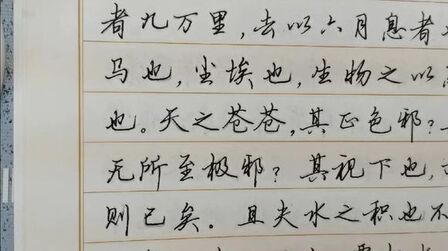 者九万里，去以六月息者
马也，尘埃也，生物之以
也。天之苍苍，其正色邪？
无所至极邪？其视下也，
则已矣。且夫水之积也不